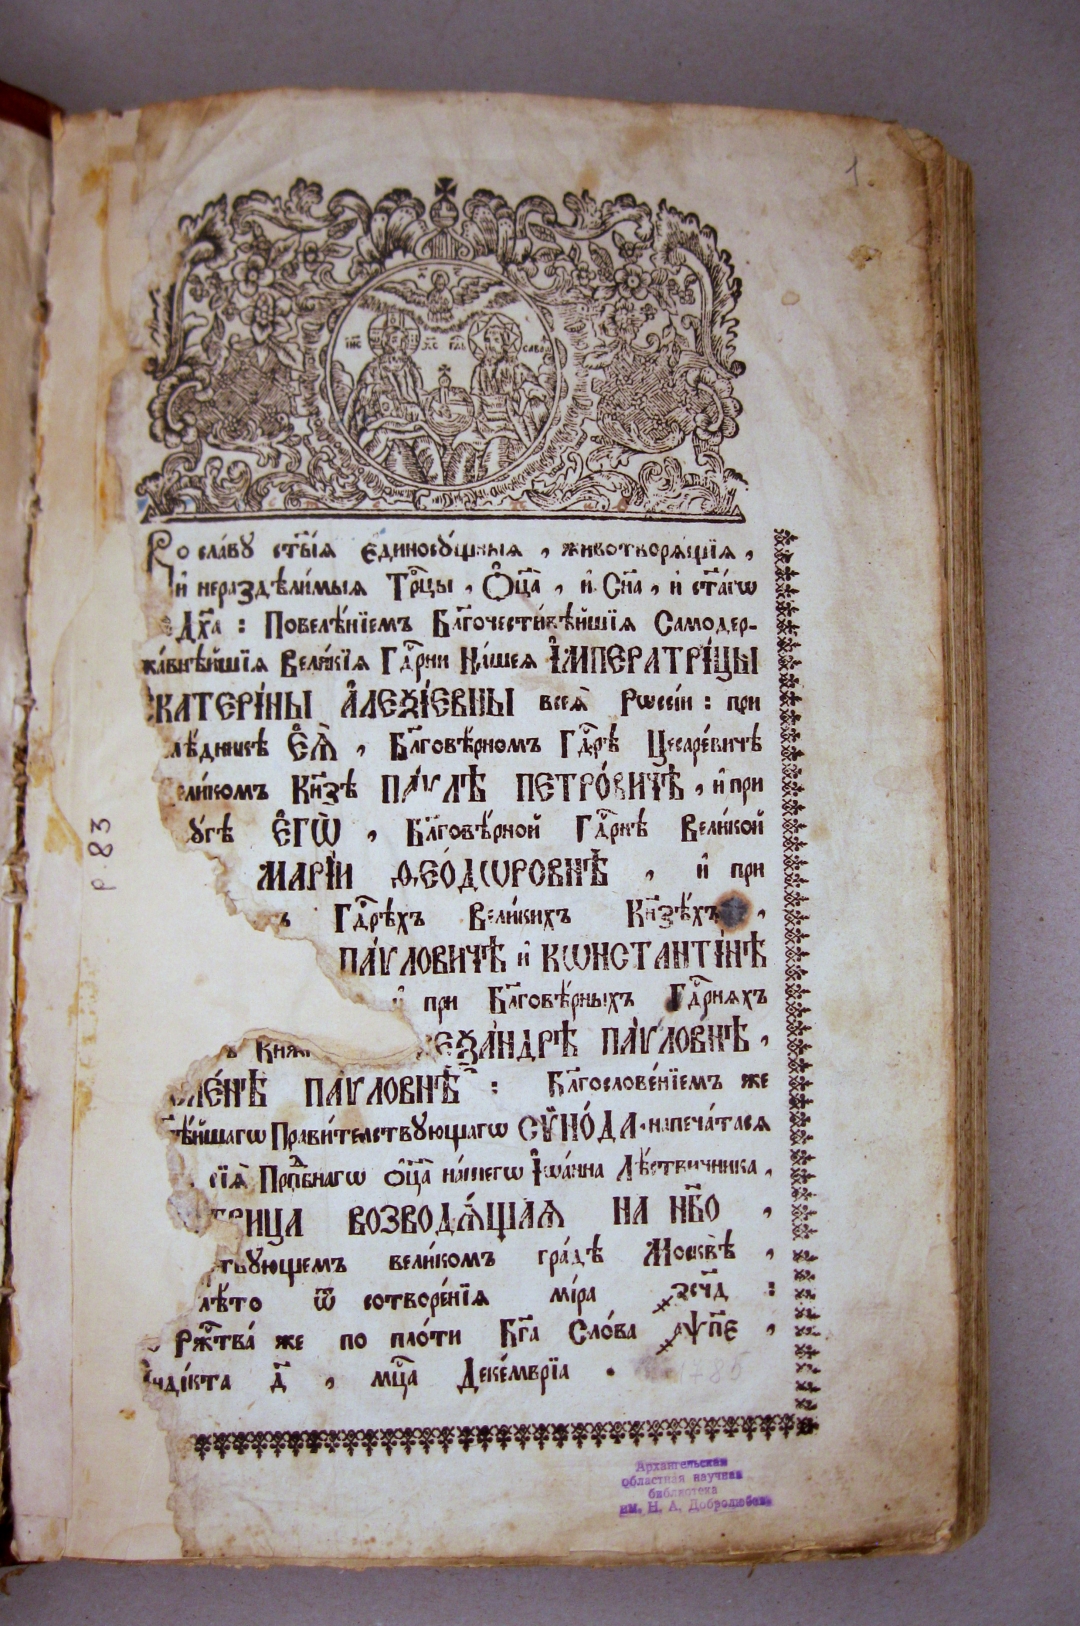 1.
Во сла́ву ст҃ы́ѧ є҆диносꙋ́щныѧ , животворѧ́щїѧ ,
и҆ нераздѣли́мыѧ Трⷪ҇цы , Ѻ҆ц҃а̀ , и҆ Сн҃а , и҆ ст҃а́гѡ
Дх҃а : Повелѣ́нїемъ Бл҃гочести́вѣйшїѧ Самодер-
жа́внѣйшїѧ Вели́кїѧ Гдⷭ҇рни На́шеѧ І҆МПЕРАТРІ́ЦЫ
ЕКАТЕРІ́НЫ А҆ЛЕѮІ́ЕВНЫ всеѧ̀ Рѡссі́и : при
лѣ́дникѣ Є҆Ѧ̀ , Бл҃говѣ́рномъ Гдⷭ҇рѣ Цесаре́вичѣ
вели́комъ Кн҃зѣ ПА́ѴЛѢ ПЕТРО́ВИЧѢ , и҆ при
ꙋ́гѣ Є҆ГѠ̀ , Бл҃говѣ́рной Гдⷭ҇рнѣ Вели́кой
МАРІ́И Ѳ҆ЕО́ДѠРОВНѢ , и҆ при
ъ Гдⷭ҇рѣхъ Вели́кихъ Кн҃зѣ́хъ ,
ПА́ѴЛОВИЧѢ и҆ КѠНСТАНТІ́НѢ
и҆ при Бл҃говѣ́рныхъ Гдⷭ҇рнѧхъ
ъ Кнѧ ЕѮА́НДРѢ ПА́ѴЛОВНѢ ,
ЛЕ́НѢ ПА́ѴЛОВНѢ : Бл҃гослове́нїемъ же
ѣ́йшагѡ Прави́телствꙋющагѡ СѴНО́ДА напеча́тасѧ
сїѧ̀ Прпⷣбнагѡ ѻ҆ц҃а̀ на́шегѡ І҆ѡа́нна Лѣ́ствичника ,
ВИЦА ВОЗВОДѦ́ЩАѦ НА НБ҃О ,
твꙋющемъ вели́комъ гра́дѣ Москвѣ̀ ,
лѣ́то ѿ сотворе́нїѧ мі́ра ҂зсч҃д :
Ржⷭ҇тва́ же по пло́ти Бг҃а Сло́ва ҂аѱп҃е ,
Індікта д҃ , мц҃а Деке́мврїа .
1785
р. 83
Архангельская
областная научная
библиотека
им. Н. А. Добролюбова